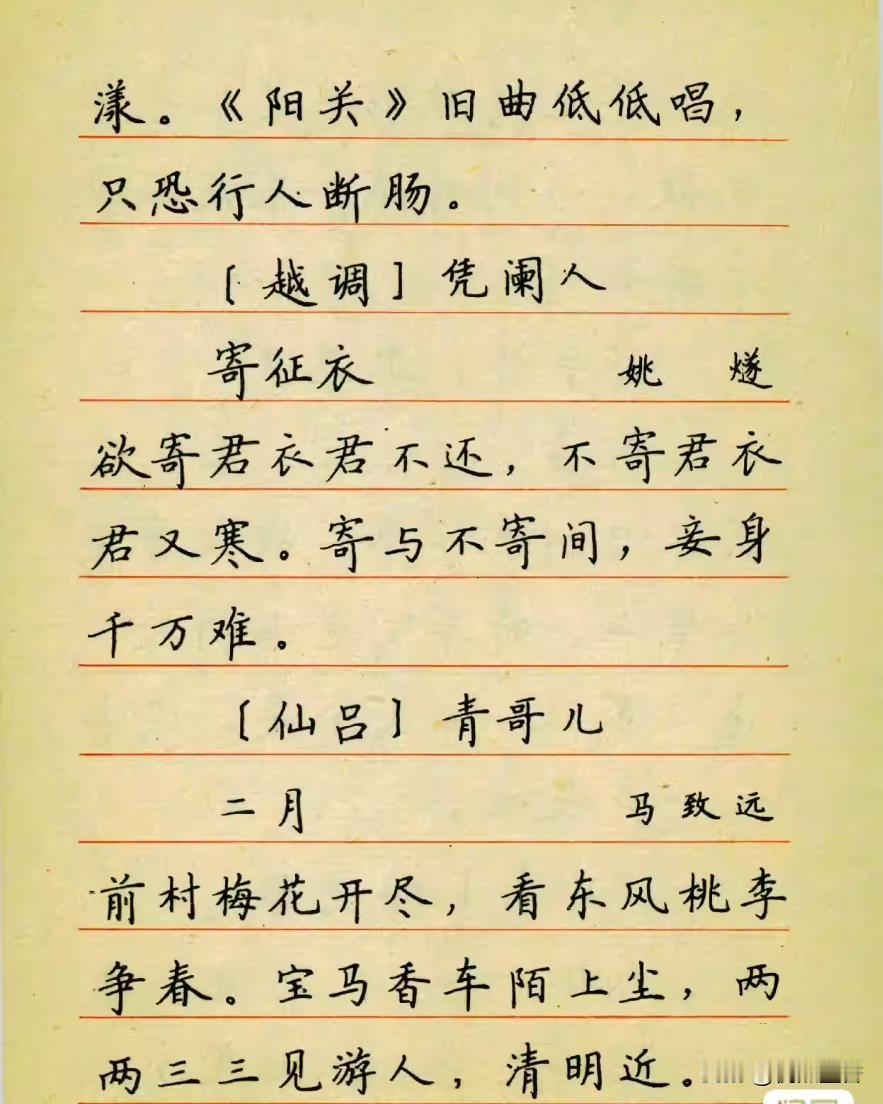 漾。《阳关》旧曲低低唱，
只恐行人断肠。
［越调］凭阑人
寄征衣 姚燧
欲寄君衣君不还，不寄君衣
君又寒。寄与不寄间，妾身
千万难。
［仙吕］青哥儿
二月 马致远
前村梅花开尽，看东风桃李
争春。宝马香车陌上尘，两
两三三见游人，清明近。